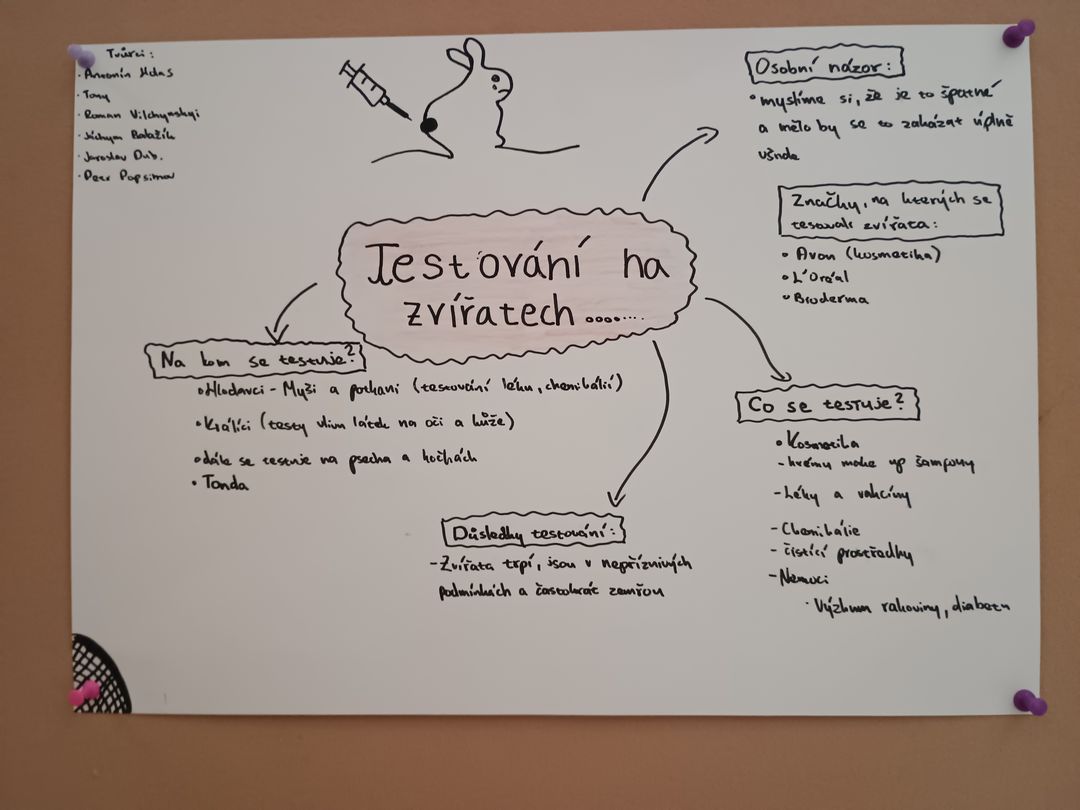 Tvůrci:
· Antonín
· Tony
· Roman Vilchynskyi
· Jáchym Balažík
· Jaroslav Dub.
· Petr Popsimov
Testování na
zvířatech........
Osobní názor:
• myslíme si, že je to špatné
a mělo by se to zakázat úplně
všude
Značky, na kterých se
testovali zvířata:
• Avon (kosmetika)
• L'Oréal
• Broderma
Na kom se testuje?
• Hlodavci - Myši a potkani (testování léku, chemikálií)
• Králíci (testy vlivu látek na oči a kůže)
• dále se testuje na psecha a kočkách
• Tonda
Co se testuje?
• Kosmetika
- krému make up šampony
- Léky a vakcíny
- Chemikálie
- čistící prostředky
- Nemoci
· Výzkum rakoviny, diabetu
Důsledky testování:
- Zvířata trpí, jsou v nepříznivých
podmínkách a častokrát zemřou